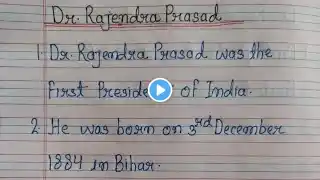 Dr. Rajendra Prasad
1. Dr. Rajendra Prasad was the
first President of India.
2. He was born on 3rd December
1884 in Bihar.